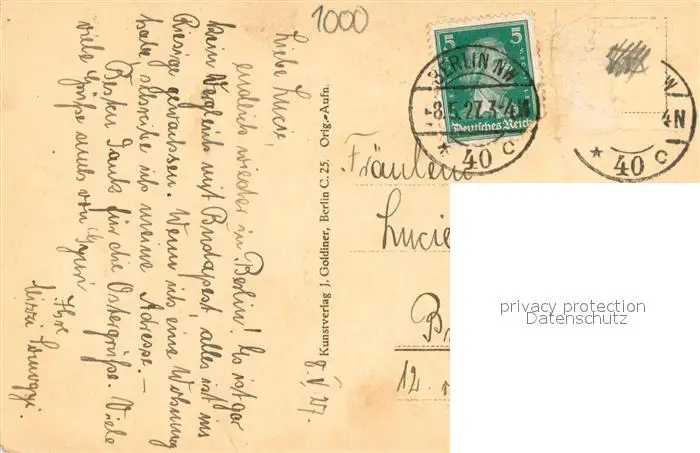 1000
8.V.27.
Liebe Lucie,
endlich wieder in Berlin! Es ist gar
kein Vergleich mit Budapest, alles ist ins
Riesige gewachsen. Wenn ich eine Wohnung
habe, schreibe ich meine Adresse. –
Besten Dank für die Ostergrüße. Viele
viele Grüße auch von
Ihre
Kunstverlag J. Goldiner, Berlin C. 25. Orig.-Aufn.
5 5
Deutsches Reich
BERLIN NW
-8.5.27.3-4N
* 40 c
W
4N
* 40 c
Fräulein
Lucie
B
12.
privacy protection
Datenschutz